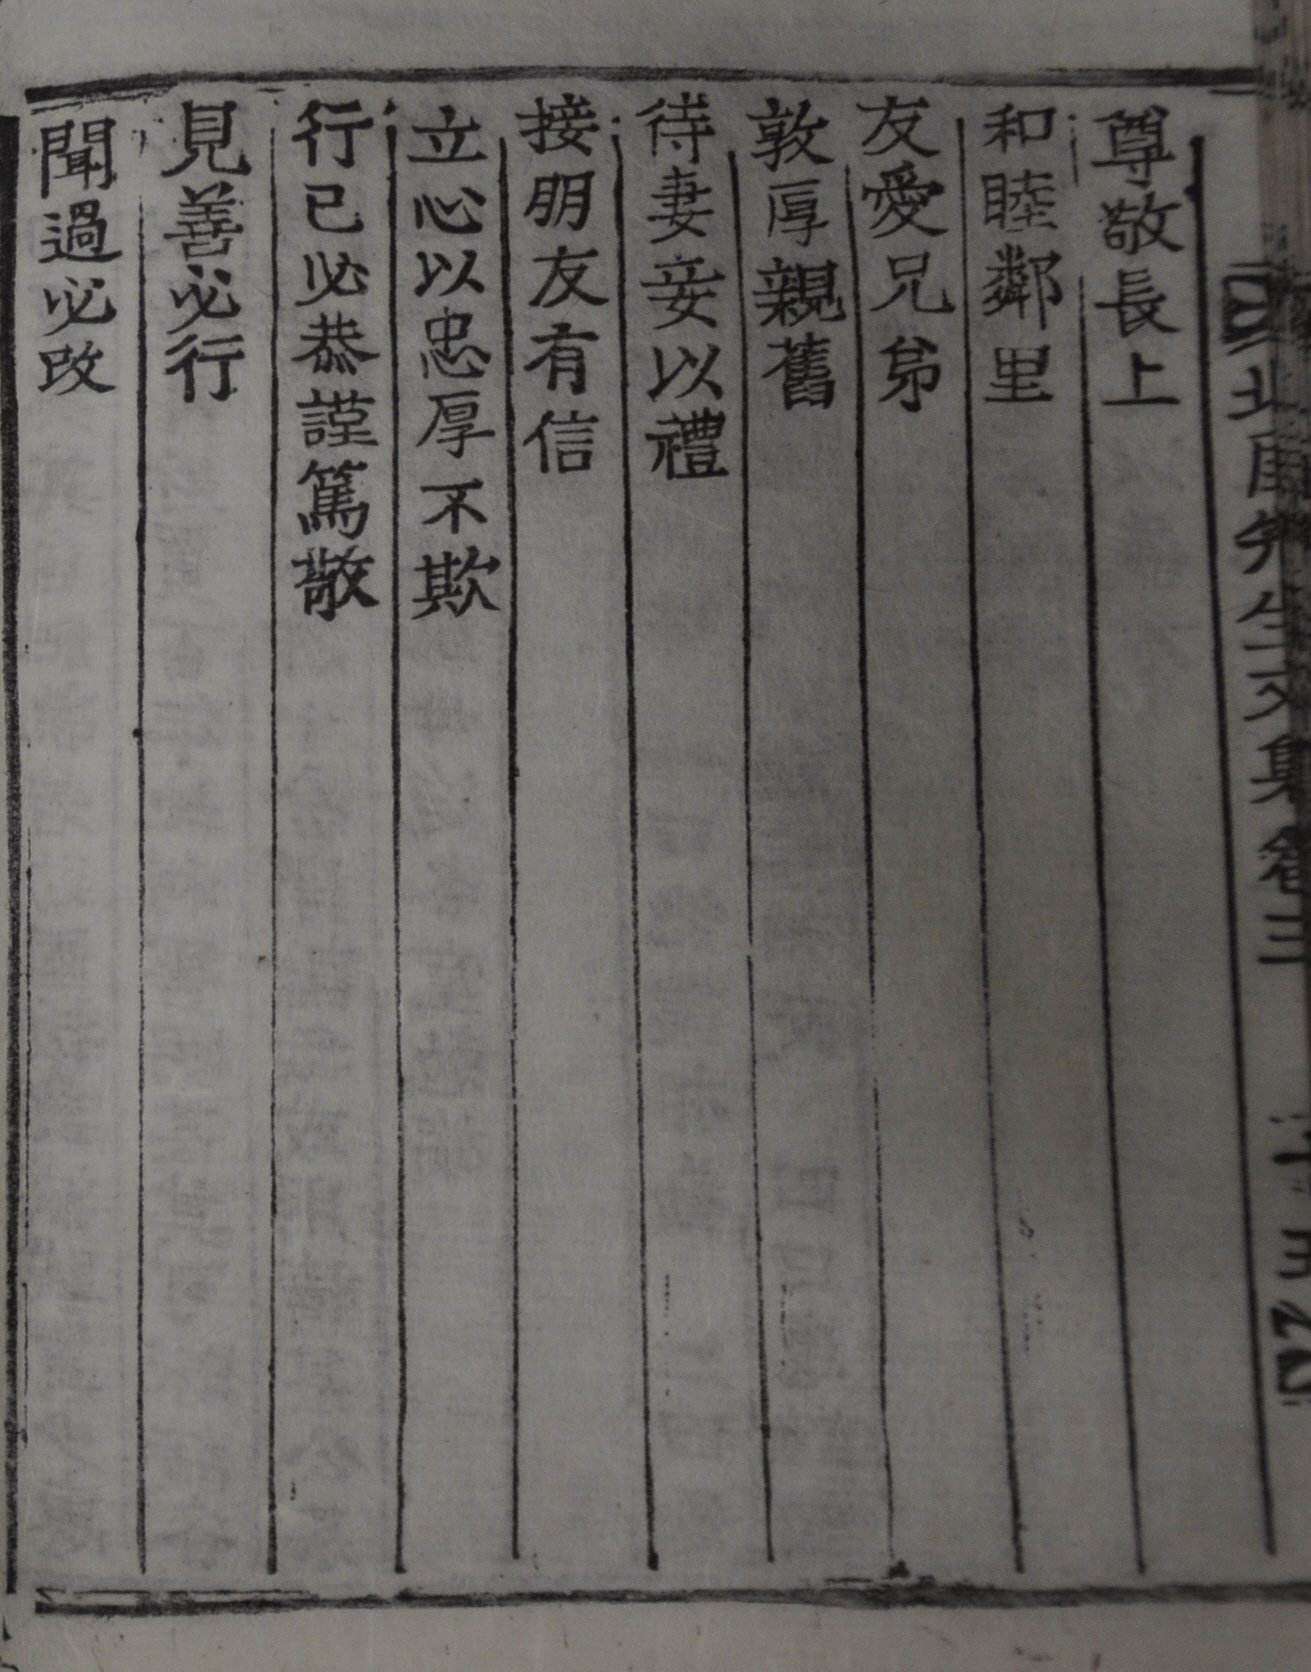 北厓先生文集卷三
尊敬長上
和睦鄰里
友愛兄弟
敦厚親舊
待妻妾以禮
接朋友有信
立心以忠厚不欺
行己必恭謹篤敬
見善必行
聞過必改